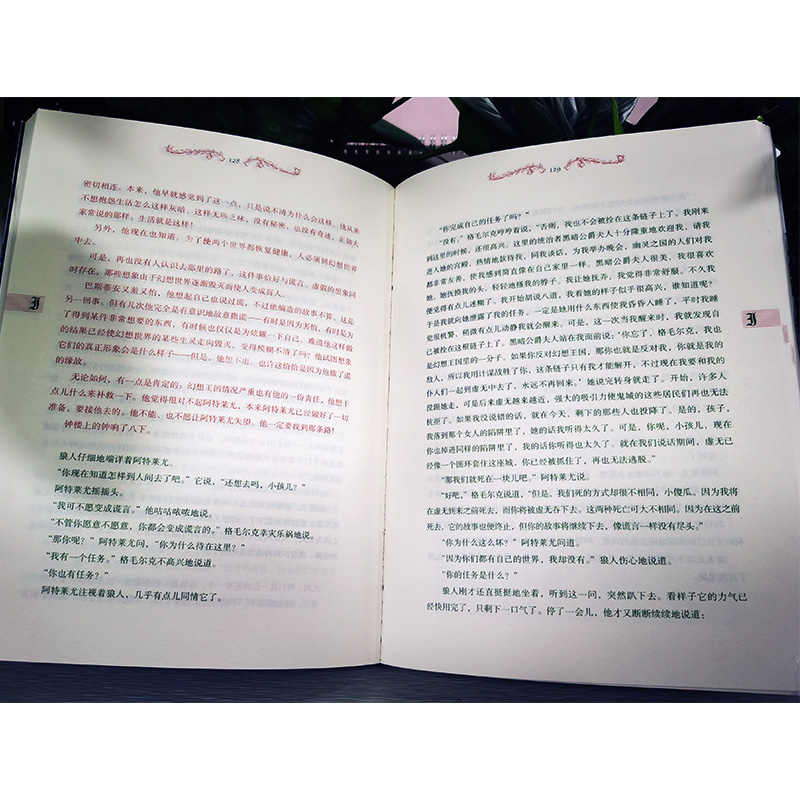 128
密切相连。本来，他早就感觉到了这一点，只是说不清为什么会这样。他从来
不想抱怨生活怎么这样灰暗、这样无聊乏味，没有秘密，也没有奇迹，正如大
家常说的那样：生活就是这样！
另外，他现在也知道，为了使两个世界都恢复健康，人必须到幻想世界
中去。
可是，再也没有人认识去那里的路了，这件事恰好与谎言、虚假的想象同
时存在，那些想象由于幻想世界逐渐毁灭而使人变成盲人。
巴斯蒂安又羞又怕，他想起自己也说过谎，不过他编造的故事不算，这是
另一回事。但有几次他完全是有意识地故意撒谎——有时是因为害怕，有时是为
了得到某件非常想要的东西，有时候也仅仅是为炫耀一下自己。难道他这样做
的结果已经使幻想世界的某些生灵走向毁灭、变得模糊不清了吗？他试图想象
它们的真正形象会是什么样子——但是，他想不出。也许这恰恰是因为他撒了谎
的缘故。
无论如何，有一点是肯定的：幻想王国情况严重也有他的一份责任，他想干
点儿什么来补救一下。他觉得很对不起阿特莱尤，本来阿特莱尤已经做好了一切
准备，要接他去的。他不能、也不愿让阿特莱尤失望。他一定要找到那条路！
钟楼上的钟响了八下。
狼人仔细地端详着阿特莱尤。
“你现在知道怎样到人间去了吧。”它说，“还想去吗，小孩儿？”
阿特莱尤摇摇头。
“我可不愿变成谎言。”他咕咕哝哝地说。
“不管你愿意不愿意，你都会变成谎言的。”格毛尔克幸灾乐祸地说。
“那你呢？”阿特莱尤问，“你为什么待在这里？”
“我有一个任务。”格毛尔克不高兴地说。
“你也有任务？”
阿特莱尤注视着狼人，几乎有点儿同情它了。
129
“你完成自己的任务了吗？”
“没有。”格毛尔克哼哼着说，“否则，我也不会被拴在这条链子上了。我刚来
到这里的时候，还很高兴。这里的统治者黑暗公爵夫人十分隆重地欢迎我，请我
进入她的宫殿，热情地款待我，同我谈话，为我举办晚会，幽灵之国的人们对我
都非常友善，使我感到简直像在自己家里一样。黑暗公爵夫人很美，我很喜欢
她。她抚摸我的头、轻轻地搔我的脖子。我让她抚弄，我觉得非常舒服。不久我
便觉得有点儿迷糊了。我开始胡说八道，我看她的样子似乎很高兴，谁知道呢？
于是我就向她泄露了我的任务。一定是她用什么东西使我昏昏入睡了，平时我睡
觉很机警，稍微有点儿动静我就会醒来。可是，这一次当我醒来时，我就发现自
己被拴在这根链子上了。黑暗公爵夫人站在我面前说：‘你忘了，格毛尔克，我也
是幻想王国里的一分子。如果你反对幻想王国，那你也就是反对我，你就是我的
敌人，所以我用计谋战胜了你，这条链子只有我才能解开，不过现在我要和我的
仆人们一起到虚无中去了，永远不再回来。’她说完转身就走了。开始，许多人
没跟她走，可是后来虚无越来越近，强大的吸引力使鬼城的这些居民们再也无法
抗拒了。如果我没说错的话，就在今天，剩下的那些人也投降了。是的，孩子，
我落到那个女人的陷阱里了，她的话我听得太久了。可是，你呢，小孩儿，现在
你也掉进同样的陷阱里了，我的话你听得也太久了。就在我们说话期间，虚无已
经像一个圆环套住这座城，你已经被抓住了，再也无法逃脱。”
“那我们就死在一块儿吧。”阿特莱尤说。
“好吧，”格毛尔克说道，“但是，我们死的方式却很不相同，小傻瓜。因为我将
在虚无到来之前死去，而你将被虚无吞下去。这两种死亡可大不相同。因为在这之前
死去，它的故事也便终止，但你的故事将继续下去，像谎言一样没有尽头。”
“你为什么这么坏？”阿特莱尤问道。
“因为你们都有自己的世界，我却没有。”狼人伤心地说道。
“你的任务是什么？”
狼人刚才还直挺挺地坐着，听到这一问，突然趴下去。看样子它的力气已
经快用完了，只剩下一口气了。停了一会儿，他才又断断续续地说道：